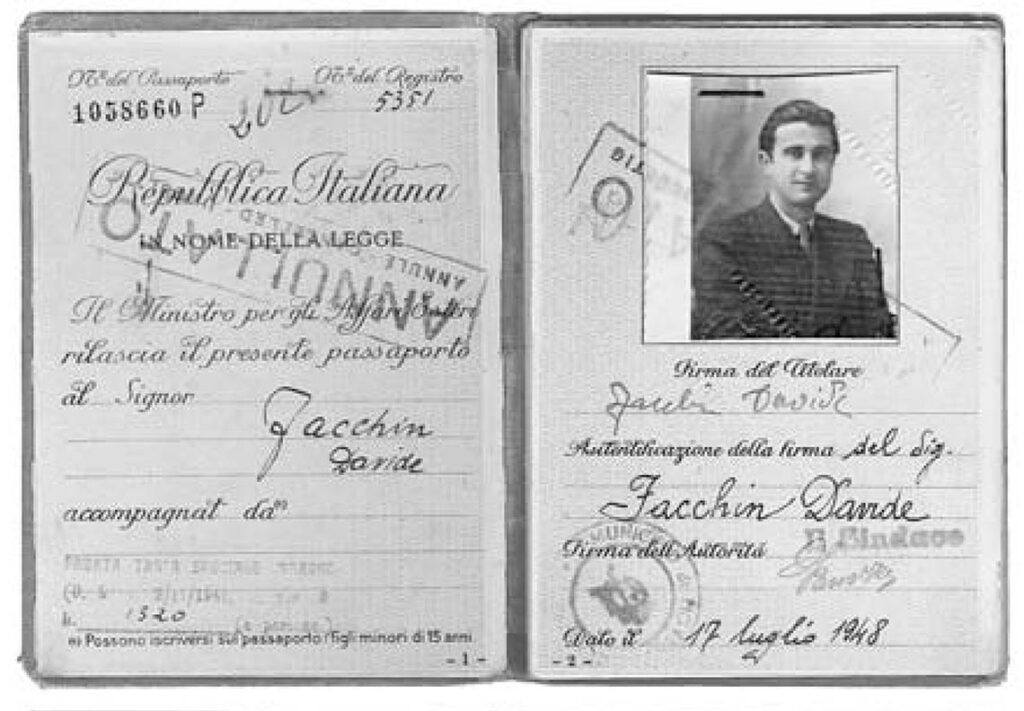 Nº del Passaporto
Nº del Registro
1058660 P
5351
Repubblica Italiana
IN NOME DELLA LEGGE
ANNULLATO
ANNULÉ
Il Ministro per gli Affari Esteri
rilascia il presente passaporto
al Signor
Facchin
Davide
accompagnat da
L. 1520
Possono iscriversi sul passaporto i figli minori di 15 anni
- 1 -
Firma del Titolare
Facchin Davide
Autentificazione della firma del Sig.
Facchin Davide
Il Sindaco
Firma dell'Autorità
Dato il 17 luglio 1948
- 2 -